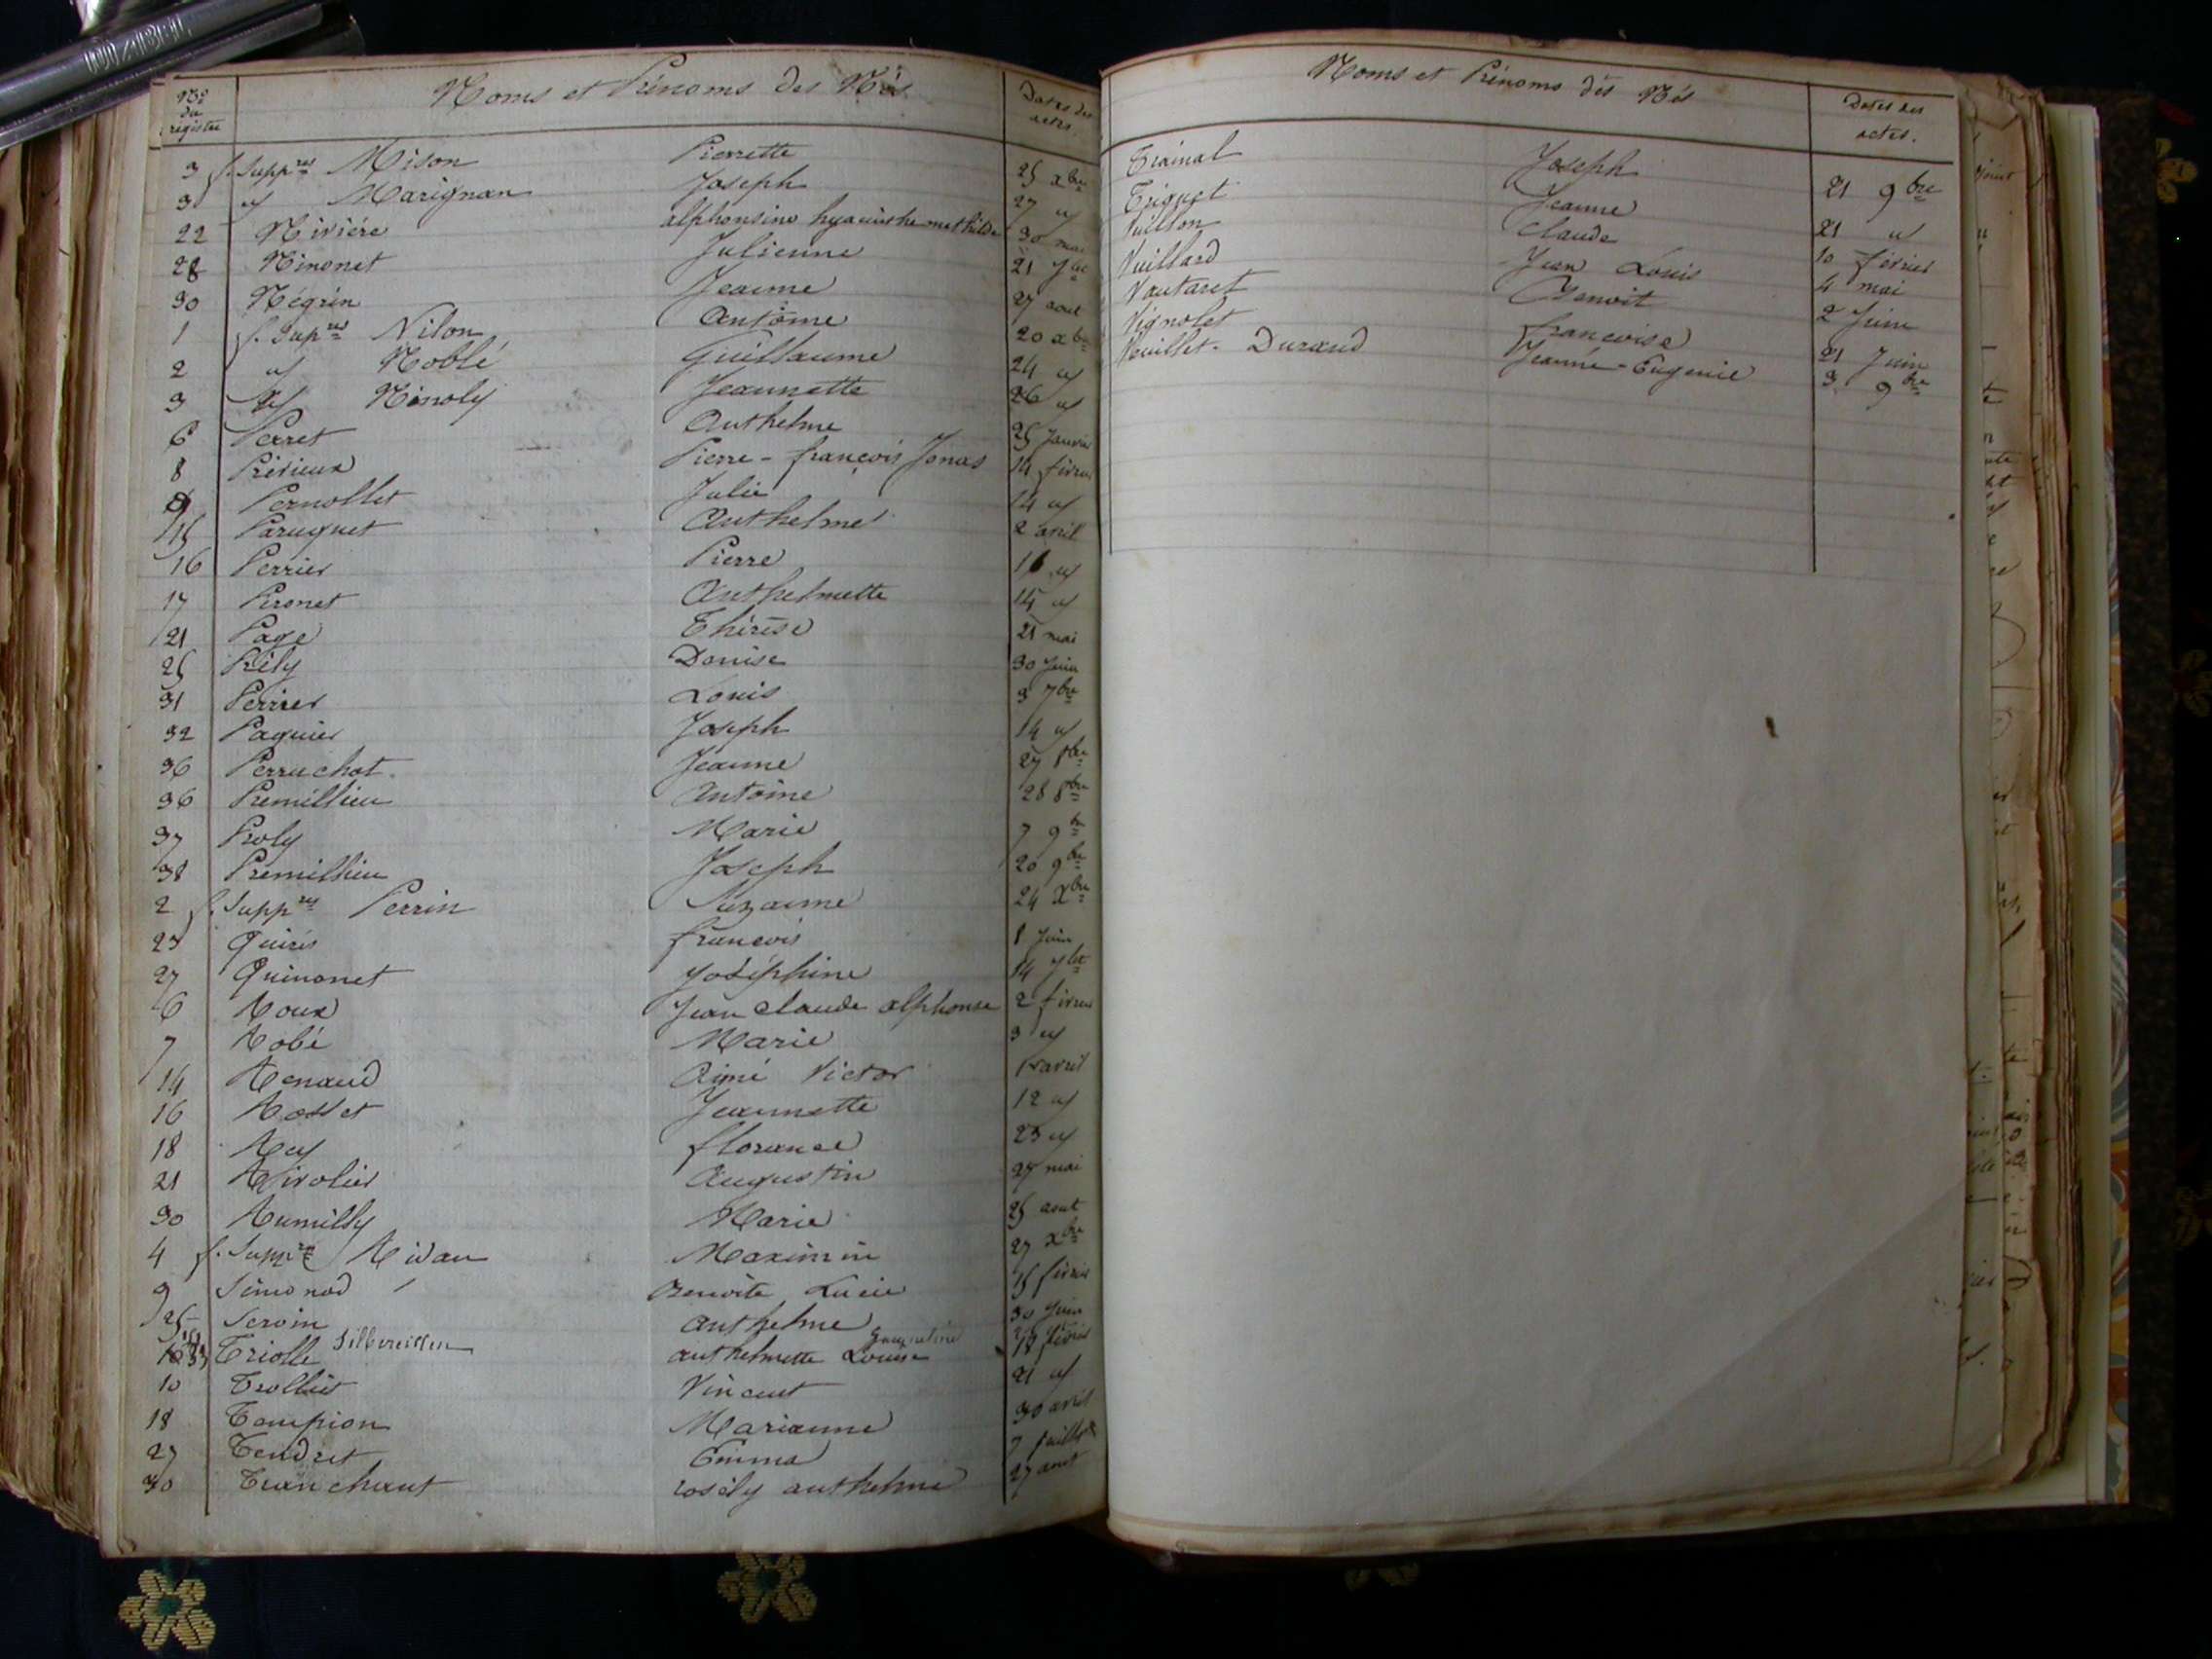 Nos du registre Noms et Prénoms des Nés Dates des actes.
3 f. Suppres Mison Pierrette 25 Xbre
3 id Marignan Joseph 27 id
22 Nivière alphonsine hyacinthe mathilde 30 mai
28 Ninonet Julienne 21
30 Négrin Jeanne 27 aout
1 f. Supres Nilon Antoine 20 Xbre
2 id Noblé Guillaume 24 id
3 id Ninoly Jeannette 26 id
6 Perret Anthelme 25 Janvier
8 Prérieux Pierre - françois Jonas 14 février
9 Pernollet Julie 14 id
15 Paruquet Anthelme 2 avril
16 Perrier Pierre 11 id
17 Pironet Anthelmette 15 id
21 Page Thérèse 21 mai
25 Pély Denise 30 Juin
31 Perrier Louis 3 7bre
32 Paquier Joseph 14 id
36 Perruchot Jeanne 27 8bre
36 Premillieu Antoine 28 8bre
37 Proly Marie 7 9bre
38 Premillieu Joseph 20 9bre
2 f. Suppres Perrin Suzanne 24 Xbre
23 Quirés françois 1 Juin
27 Quinonet Joséphine 14 Jlet
6 Roux Jean Claude alphonse 2 février
7 Robé Marie 3 id
14 Renaud Aimé Victor 1er avril
16 Rosset Jeannette 12 id
18 Rey florance 23 id
21 Rivolier Augustin 27 mai
30 Rumilly Marie 25 aout
4 f. Suppres Rivau Maximin 27 Xbre
9 Simonod Benoite Lucie 15 février
25 Seroin anthelme 30 Juin
Silbereissen Jacqueline
Triolle anthelmette Louise 18 février
10 Trolliet Vincent 21 id
18 Tempion Marianne 30 avril
27 Tendret Emma 7 Juillet
30 Tranchant rosély anthelme 27 aout
Noms et Prénoms des Nés Dates des actes.
Trainal Joseph 21 9bre
Triquet Jeanne 21 id
Vuillon Claude 10 février
Vuillard Jean Louis 4 mai
Vautaret Benoit 2 Juin
Vignolet françoise 21 Juin
Vouillet - Durand Jeanne - Eugenie 3 9bre